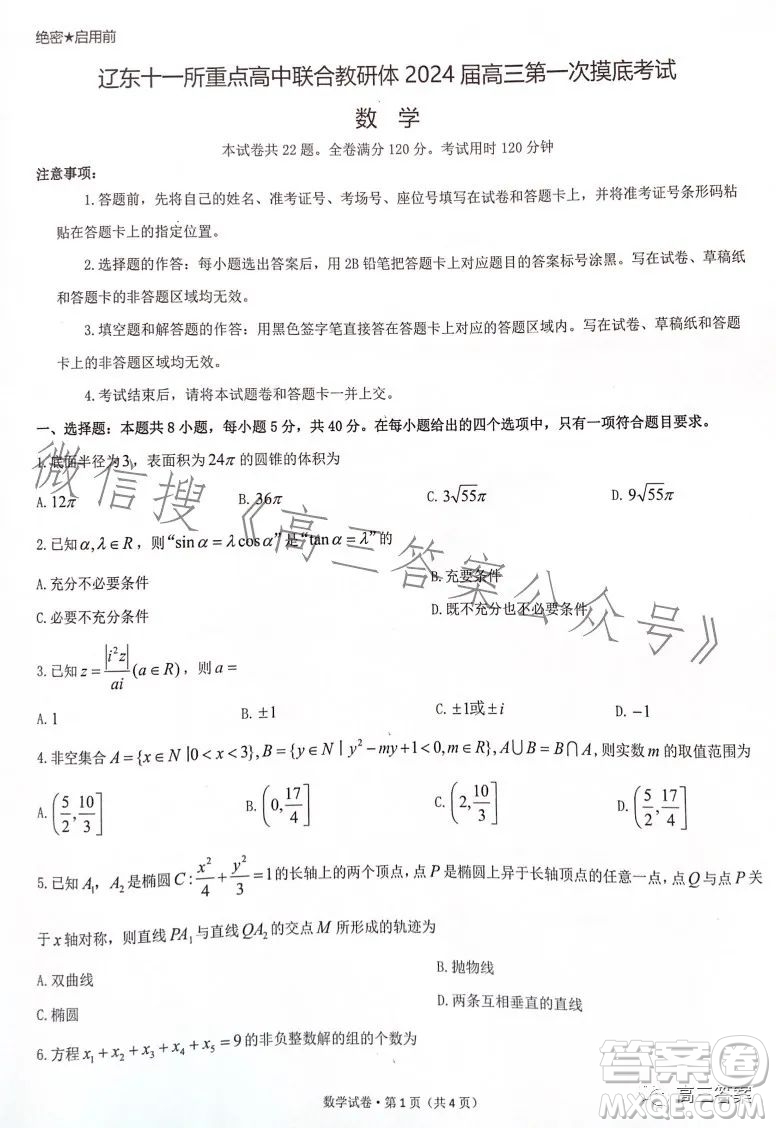 绝密★启用前
辽东十一所重点高中联合教研体 2024 届高三第一次摸底考试
数 学
本试卷共 22 题。全卷满分 120 分。考试用时 120 分钟
注意事项：
1.答题前，先将自己的姓名、准考证号、考场号、座位号填写在试卷和答题卡上，并将准考证号条形码粘
贴在答题卡上的指定位置。
2.选择题的作答：每小题选出答案后，用 2B 铅笔把答题卡上对应题目的答案标号涂黑。写在试卷、草稿纸
和答题卡的非答题区域均无效。
3.填空题和解答题的作答：用黑色签字笔直接答在答题卡上对应的答题区域内。写在试卷、草稿纸和答题
卡上的非答题区域均无效。
4.考试结束后，请将本试题卷和答题卡一并上交。
一、选择题：本题共 8 小题，每小题 5 分，共 40 分。在每小题给出的四个选项中，只有一项符合题目要求。
1.底面半径为3，表面积为 24π 的圆锥的体积为
A. 12π B. 36π C. 3√55π D. 9√55π
2.已知 α,λ∈R，则“sinα=λcosα”是“tanα=λ”的
A.充分不必要条件 B.充要条件
C.必要不充分条件 D.既不充分也不必要条件
3.已知 z=|i²z|/ai (a∈R)，则 a=
A.1 B.±1 C.±1或±i D.-1
4.非空集合 A={x∈N|0<x<3},B={y∈N|y²-my+1<0,m∈R},A∪B=B∩A,则实数 m 的取值范围为
A.(5/2,10/3] B.(0,17/4] C.(2,10/3] D.(5/2,17/4]
5.已知 A₁，A₂ 是椭圆 C:x²/4+y²/3=1的长轴上的两个顶点，点 P 是椭圆上异于长轴顶点的任意一点，点 Q 与点 P 关
于 x 轴对称，则直线 PA₁ 与直线 QA₂ 的交点 M 所形成的轨迹为
A.双曲线 B.抛物线
C.椭圆 D.两条互相垂直的直线
6.方程 x₁+x₂+x₃+x₄+x₅=9 的非负整数解的组的个数为
数学试卷·第 1 页（共 4 页）
微信搜《高三答案公众号》
高三答案
答案圈
MXQE.COM